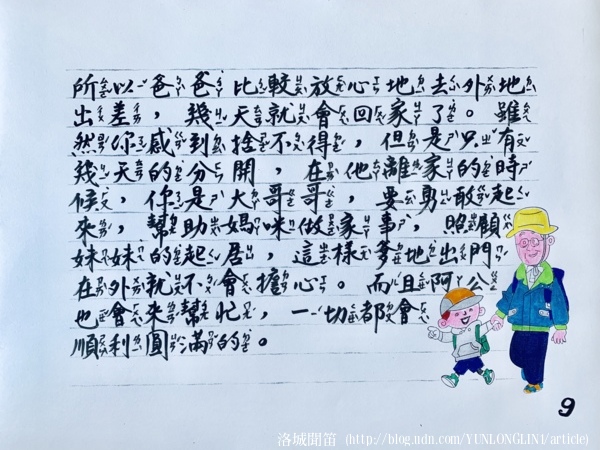 所以爸爸比較放心地去外地
出差，幾天就會回家了。雖
然你感到捨不得，但是只有
幾天的分開，在他離家的時
候，你是大哥哥，要勇敢起
來，幫助媽咪做家事，照顧
妹妹的起居，這樣爹地出門
在外就不會擔心。而且阿公
也會來幫忙，一切都會
順利圓滿的。
9
洛城聞笛 (http://blog.udn.com/YUNLONGLIN1/article)